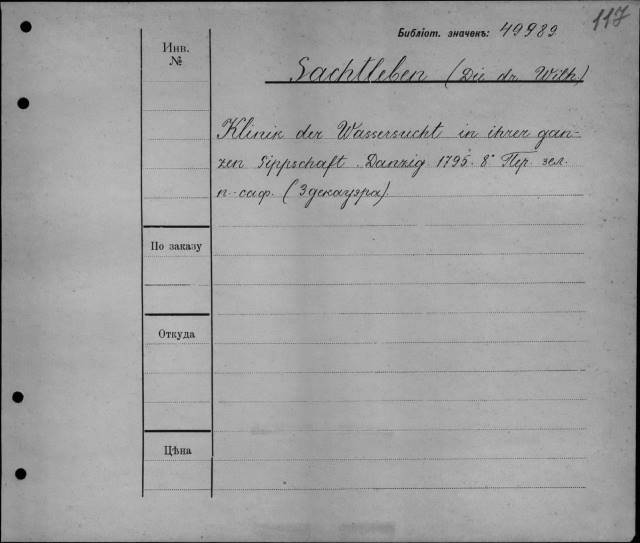 117
Бібліот. значекъ: 49989
Инв.
№
Sachtleben (Die dr Wilh)
Klinik der Wassersucht in ihrer gan-
zen Sippschaft. Danzig 1795. 8° Пер. зел.
п-саф. (Здекауэра).
По заказу
Откуда
Цѣна